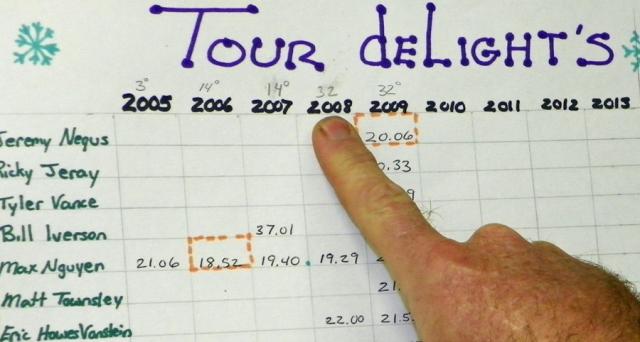 TOUR deLIGHT'S
3° 14° 14° 32 32°
2005 2006 2007 2008 2009 2010 2011 2012 2013
Jeremy Negus 20.06
Ricky Jeray .33
Tyler Vance 9
Bill Iverson 37.01
Max Nguyen 21.06 18.52 19.40 19.29
Matt Townsley 21.
Eric HowesVanstein 22.00 21.5